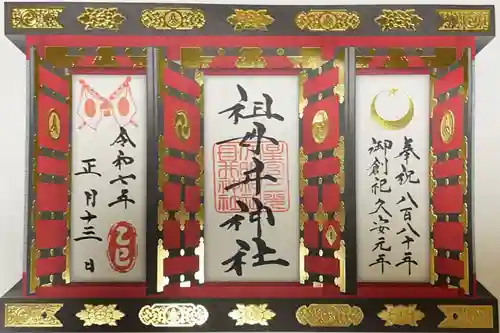 奉祝 八百八十年
御創祀 久安元年
祖母井神社
令和七年
正月十三日
乙巳